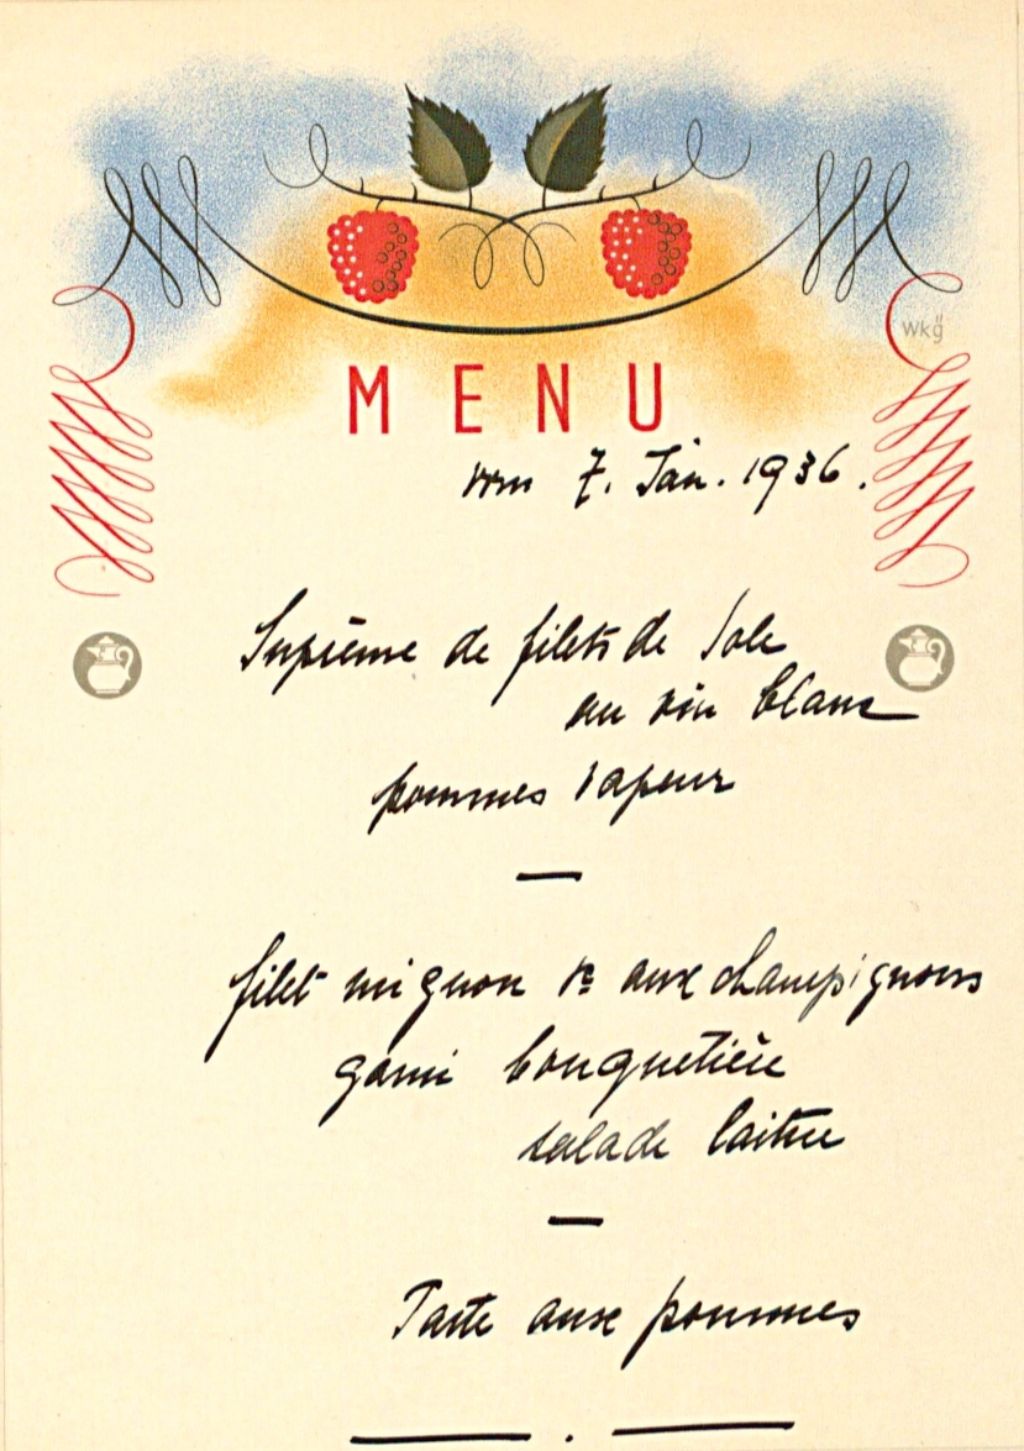 Wkg
MENU
vom 7. Jan. 1936.
Suprême de filets de Sole
au vin blanc
pommes vapeur
—
filet mignon aux champignons
garni bouquetière
salade laitue
—
Tarte aux pommes